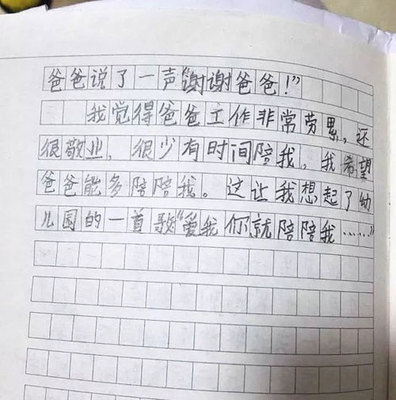 爸爸说了一声"谢谢爸爸!"
我觉得爸爸工作非常劳累,还
很敬业,很少有时间陪我,我希望
爸爸能多陪陪我。这让我想起了幼
儿园的一首歌"爱我你就陪陪我……"